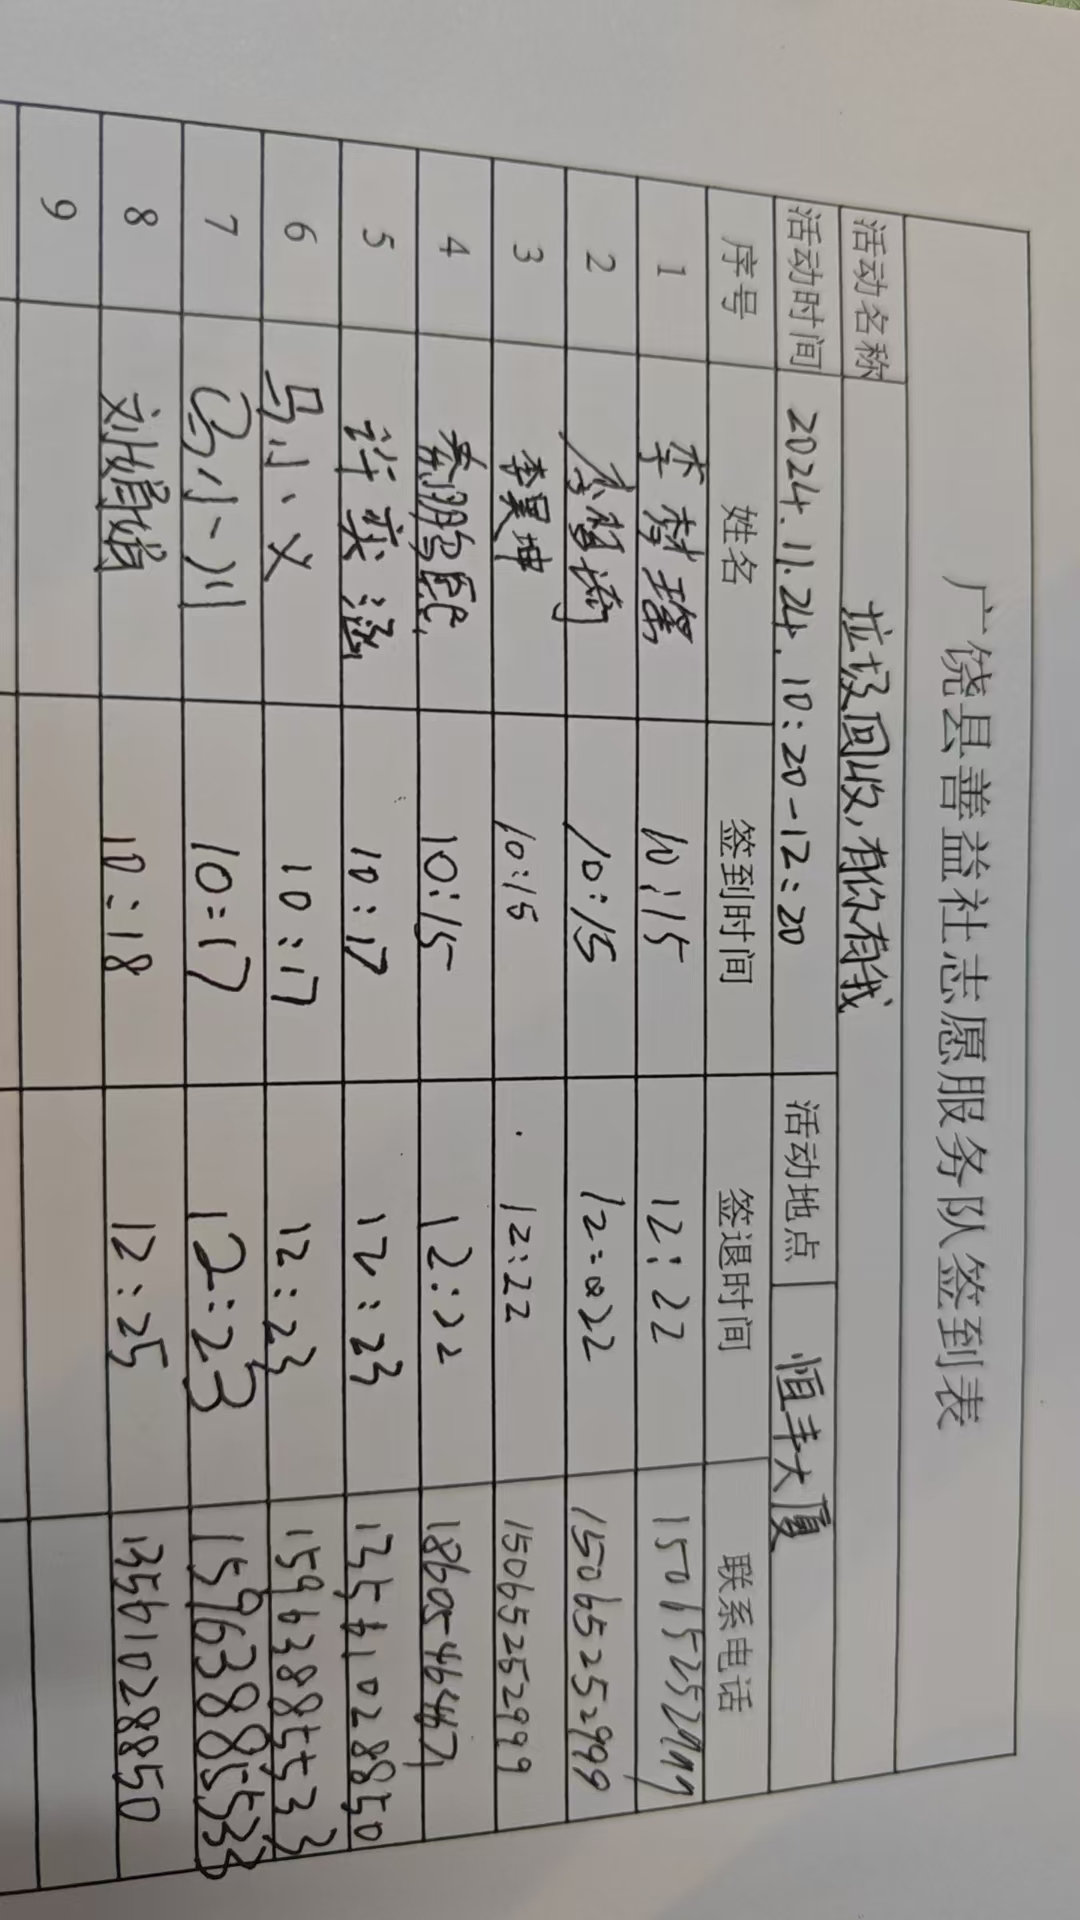 广饶县善益社志愿服务队签到表
活动名称 垃圾回收,有你有我
活动时间 2024.11.24. 10:20-12:20 活动地点 恒丰大厦
序号 姓名 签到时间 签退时间 联系电话
1 李 10:15 12:22 15065252999
2 10:15 12:22 15065252999
3 李昊坤 10:15 12:22 15065252999
4 秦鹏 10:15 12:22 18605464671
5 许奕涵 10:17 12:23 13561028850
6 马小义 10:17 12:23 15963885533
7 马小川 10:17 12:23 15963885533
8 刘娟娟 10:18 12:25 13561028850
9